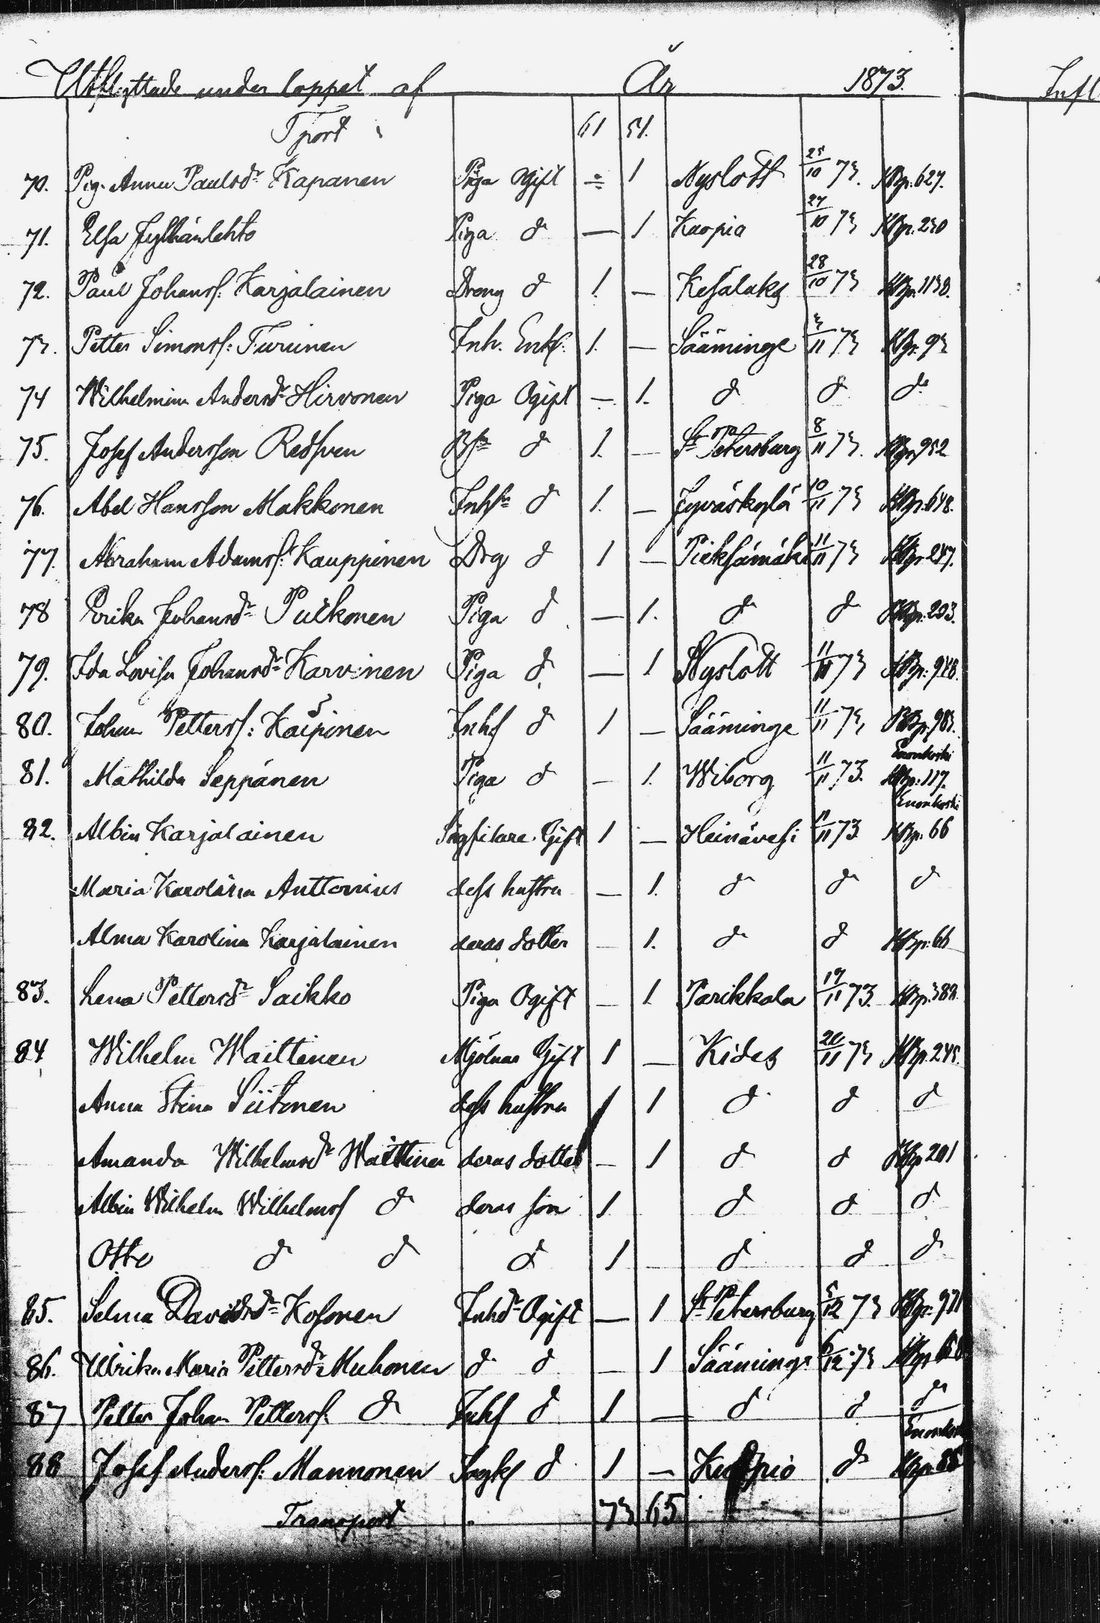 Utflyttade under loppet af År 1873. Infl
Tport 61 51.
70. Pig. Anna Paulsdr Kapanen Piga Ogift — 1 Nyslott 25/10 73. KBp. 627.
71. Elsa Jylhänlehto Piga d — 1. Kuopio 27/10 73 KBp. 230
72. Paul Johansf: Karjalainen Dreng d 1. — Kesälaks 28/10 73 KBp. 1138.
73. Petter Simonsf: Turunen Inh. Enkl. 1. — Sääminge 3/11 73 KBp. 93
74 Wilhelmina Andersdr Hirvonen Piga Ogift — 1. d d d
75. Josef Andersson Redsven d 1. — St Petersburg 8/11 73. KBp. 952
76. Abel Hansson Makkonen Inhsn d 1. — Jyväskylä 10/11 73 KBp. 648.
77. Abraham Adamsf: Kauppinen Drg d 1 — Pieksämäki 11/11 73 KBp. 247.
78 Erika Johansdr Pulkonen Piga d — 1. d d KBp. 203.
79. Ida Lovisa Johansdr Karvinen Piga d. — 1 Nyslott 11/11 73 KBp. 948.
80. Johan Pettersf: Kaipinen Inhs d 1 — Sääminge 11/11 73 KBp. 983.
Enonkoski
81. Mathilda Seppänen Piga d — 1. Wiborg 11/11 73. KBp. 117.
Enonkoski
82. Albin Karjalainen Sågfilare. Gift 1 — Heinävesi 11/11 73 KBp. 66
Maria Karolina Anttonius dess hustru — 1. d d d
Alma Karolina Karjalainen deras dotter — 1. d d KBp. 66
83. Lena Pettersdr Saikko Piga Ogift — 1. Parikkala 19/11 73. KBp. 388.
84. Wilhelm Waittinen Mjölnar Gift 1 — Kides 20/11 73 KBp. 245.
Anna Stina Siitonen dess hustru 1 1 d d d
Amanda Wilhelmsdr Waittinen deras dotter — 1 d d KBp 201
Albin Wilhelm Wilhelmsf d deras son 1. d d d
Otto d d d 1 d d d
85. Selma Davidsdr Kosonen Inhdr Ogift — 1 St Petersburg 5/12 73 KBp. 971
86. Ulrika Maria Pettersdr Muhonen d d — 1 Sääminge 6/12 73 KBp
87 Petter Johan Pettersf. d Inhs d 1 — d d d
Enonkoski
88 Josef Andersf: Mannonen Sagkl d 1 — Kuopio d KBp. 86
Transport 73 65